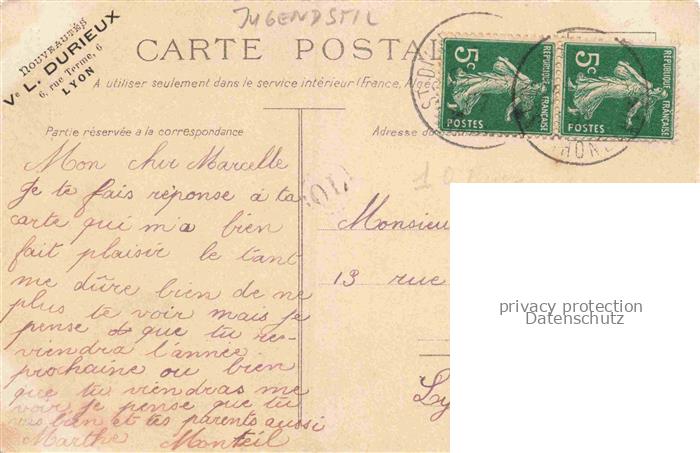 JUGENDSTIL
NOUVEAUTÉS
Ve L. DURIEUX
6, rue Terme, 6
LYON
CARTE POSTAL
A utiliser seulement dans le service intérieur (France, Algé
5c
RÉPUBLIQUE FRANÇAISE
POSTES
5c
RÉPUBLIQUE FRANÇAISE
POSTES
RHONE
Partie réservée à la correspondance
Adresse du
Mon cher Marcelle
Je te fais réponse a ta
carte qui m'a bien
fait plaisir le tant
me dûre bien de ne
plus te voir mais je
pense que tu re-
viendra l'année
prochaine ou bien
que tu viendras me
voir je pense que tu
vas bien et tes parents aussi
Marthe Monteil
Monsieu
13 rue
Ly
privacy protection
Datenschutz